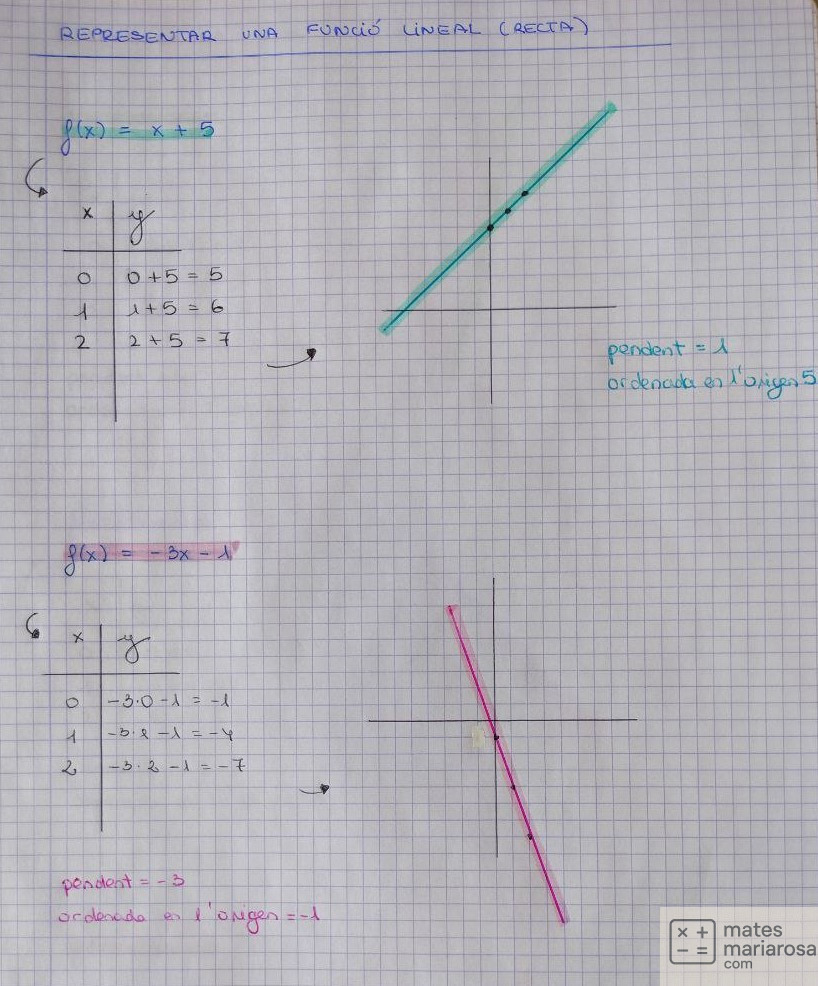 REPRESENTAR UNA FUNCIÓ LINEAL (RECTA)
f(x) = x + 5
x y
0 0+5 = 5
1 1+5 = 6
2 2+5 = 7
pendent = 1
ordenada en l'origen 5
f(x) = -3x - 1
x y
0 -3·0 -1 = -1
1 -3·1 -1 = -4
2 -3·2 -1 = -7
pendent = -3
ordenada en l'origen = -1
× + mates
- = mariarosa
com